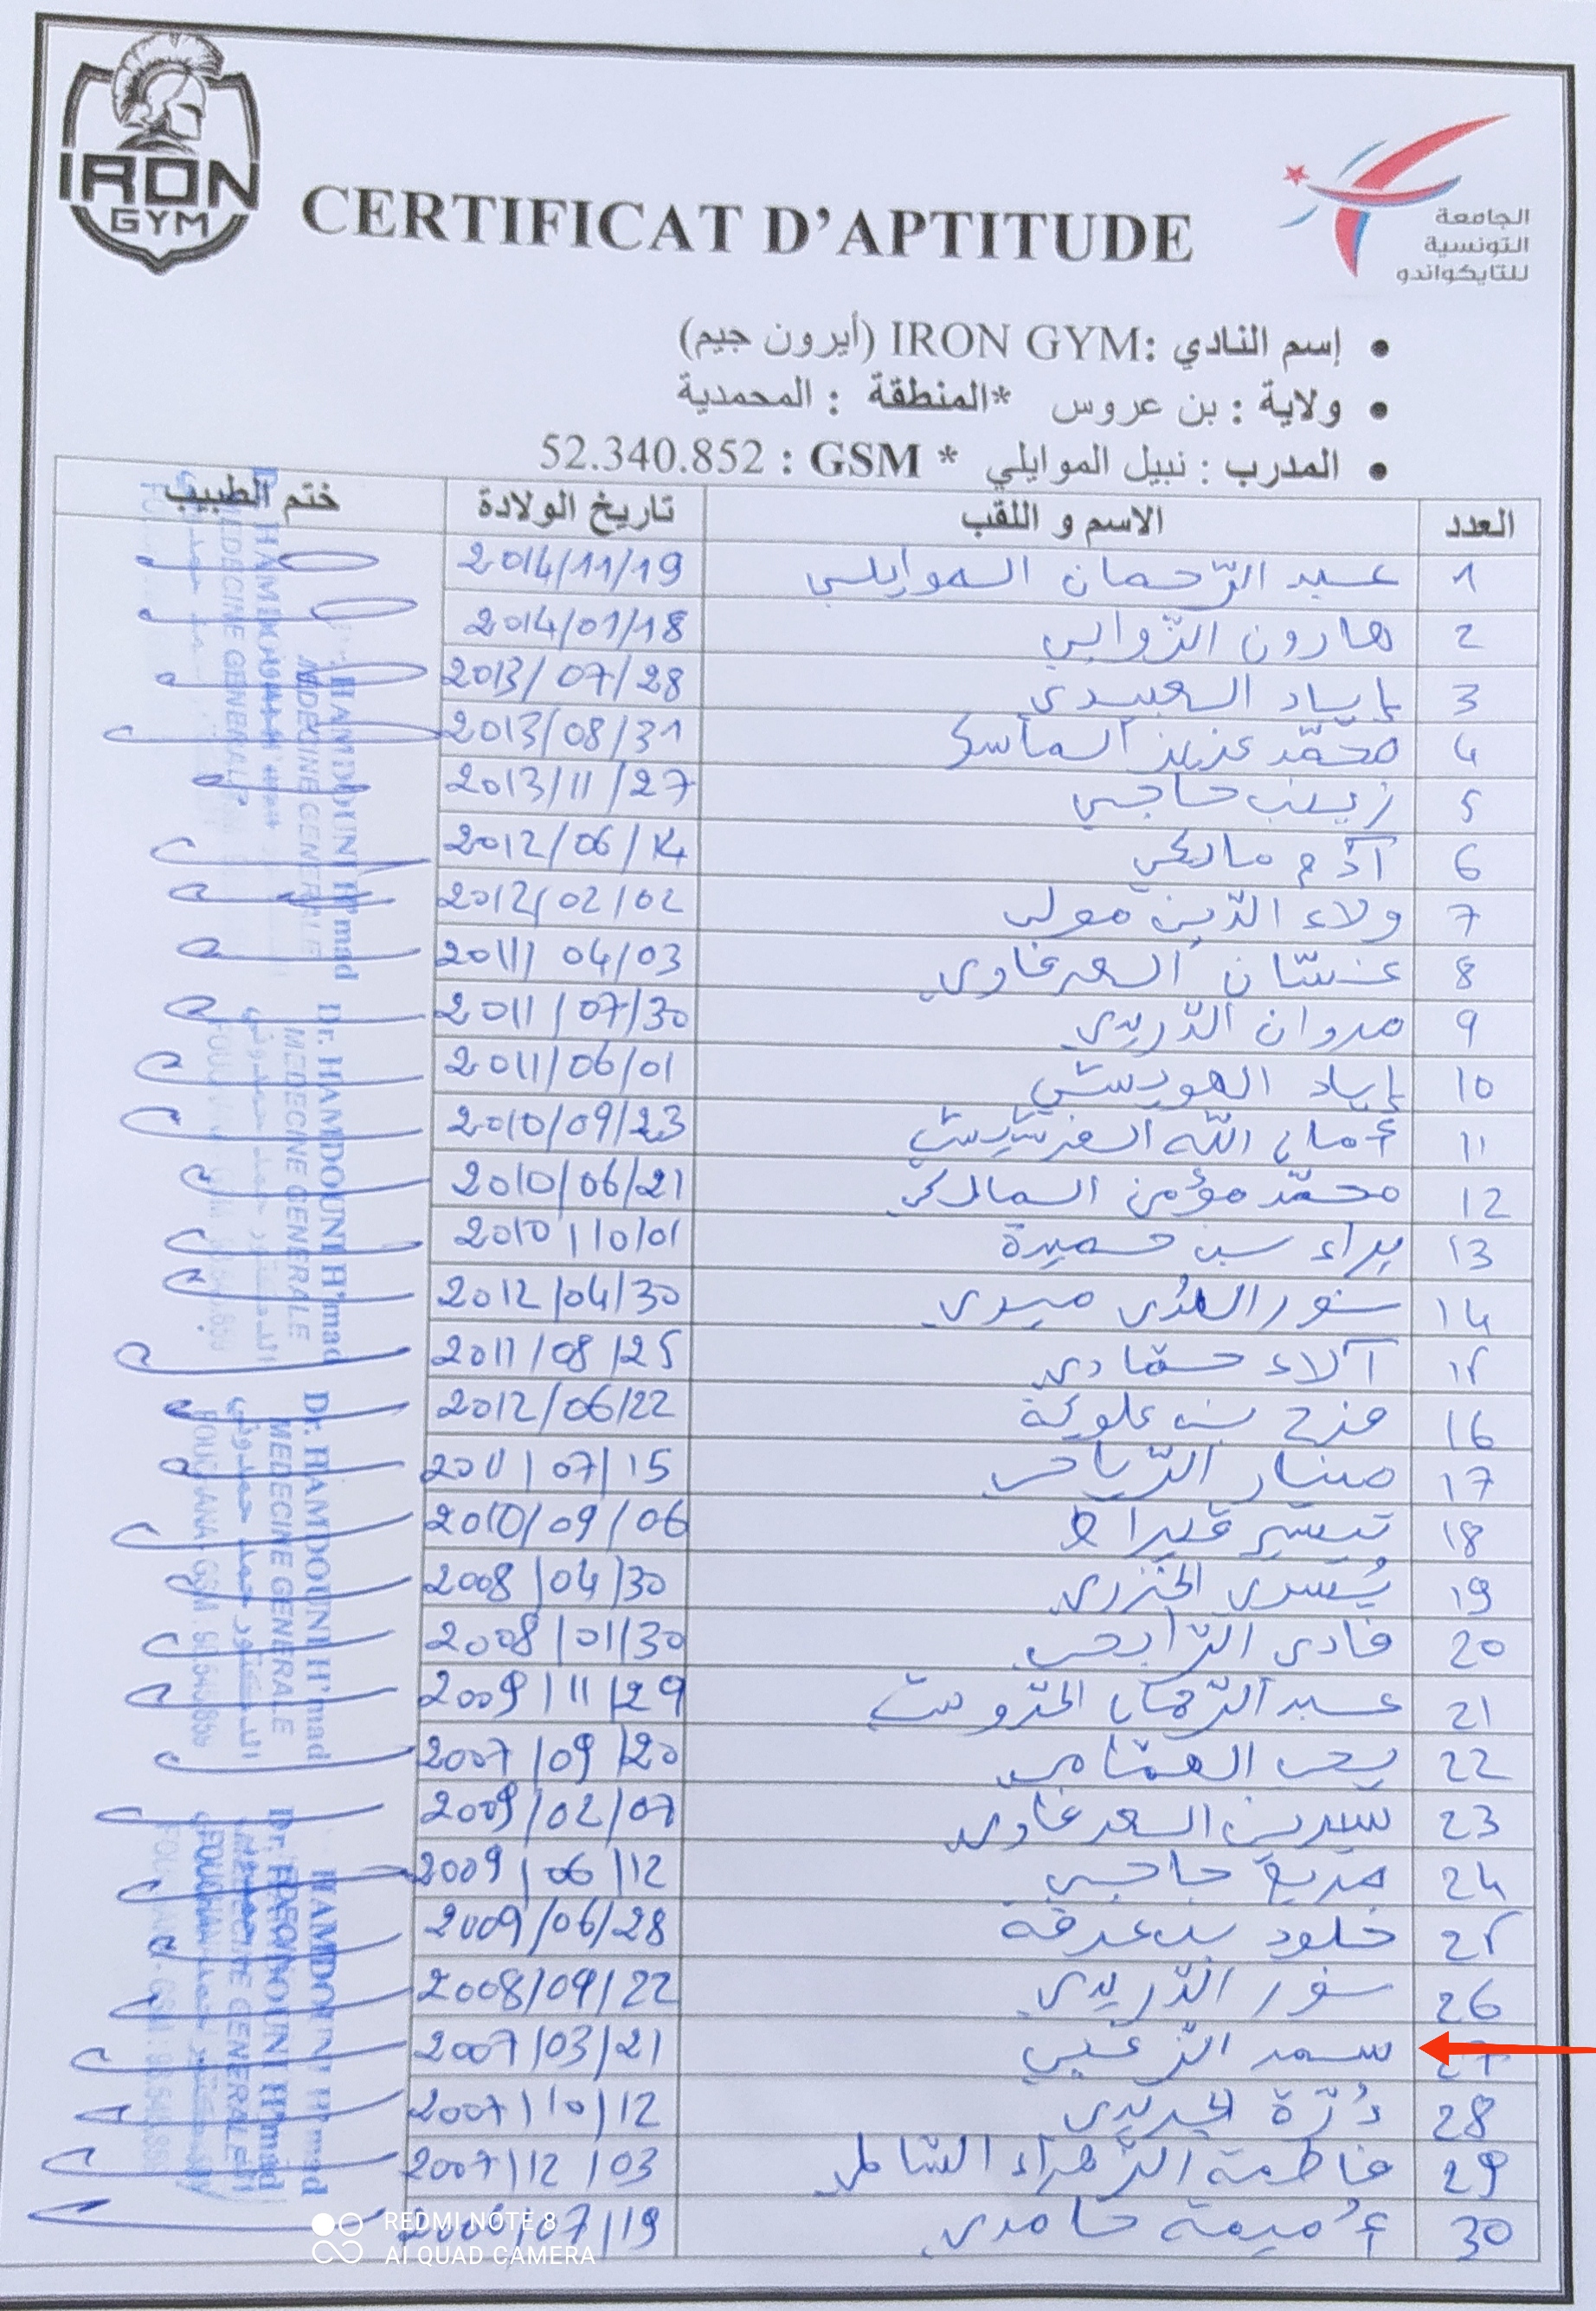 IRON
GYM
CERTIFICAT D'APTITUDE
الجامعة
التونسية
للتايكواندو
إسم النادي :IRON GYM (أيرون جيم)
ولاية : بن عروس *المنطقة : المحمدية
المدرب : نبيل الموايلي * GSM : 52.340.852
العدد الاسم و اللقب تاريخ الولادة ختم الطبيب
1 عبد الرّحمان الموايلي 2014/11/19
2 هارون الزّوابي 2014/01/18
3 إياد العبيدي 2013/07/28
4 محمّد عزيز 2013/08/31
5 زينب حاجي 2013/11/27
6 آدم مالكي 2012/06/14
7 ولاء الدّين مولى 2012/02/02
8 غسّان السعرغاوي 2011/04/03
9 مروان الدّريدي 2011/07/30
10 إياد 2011/06/01
11 أمان الله الفرشيشي 2010/09/23
12 محمّد مؤمن المالكي 2010/06/21
13 براء بن حميدة 2010/10/01
14 نور الهدى ميدي 2012/04/30
15 آلاء حمّادي 2011/08/25
16 فرح بن علوية 2012/06/22
17 منار الرّياحي 2011/07/15
18 تيسير قيراط 2010/09/06
19 يُسرى الخزري 2008/04/30
20 فادي الرّابحي 2008/01/30
21 عبد الرّحمان 2009/11/29
22 يحي الهمّامي 2007/09/20
23 سيرين السعرغاوي 2009/02/07
24 مريم حاجي 2009/06/12
25 خلود بن عرفة 2009/06/28
26 نور الدّريدي 2008/09/22
27 سمر الزغبي 2007/03/21
28 دُرّة الجريدي 2007/10/12
29 فاطمة الزّهراء الشاملي 2007/12/03
30 أُميمة حامدي 07/19
Dr. HAMDOUNI H'mad
MEDECINE GENERALE
الدكتور حمد حمدوني
FOUCHANA - GSM
REDMI NOTE 8
AI QUAD CAMERA